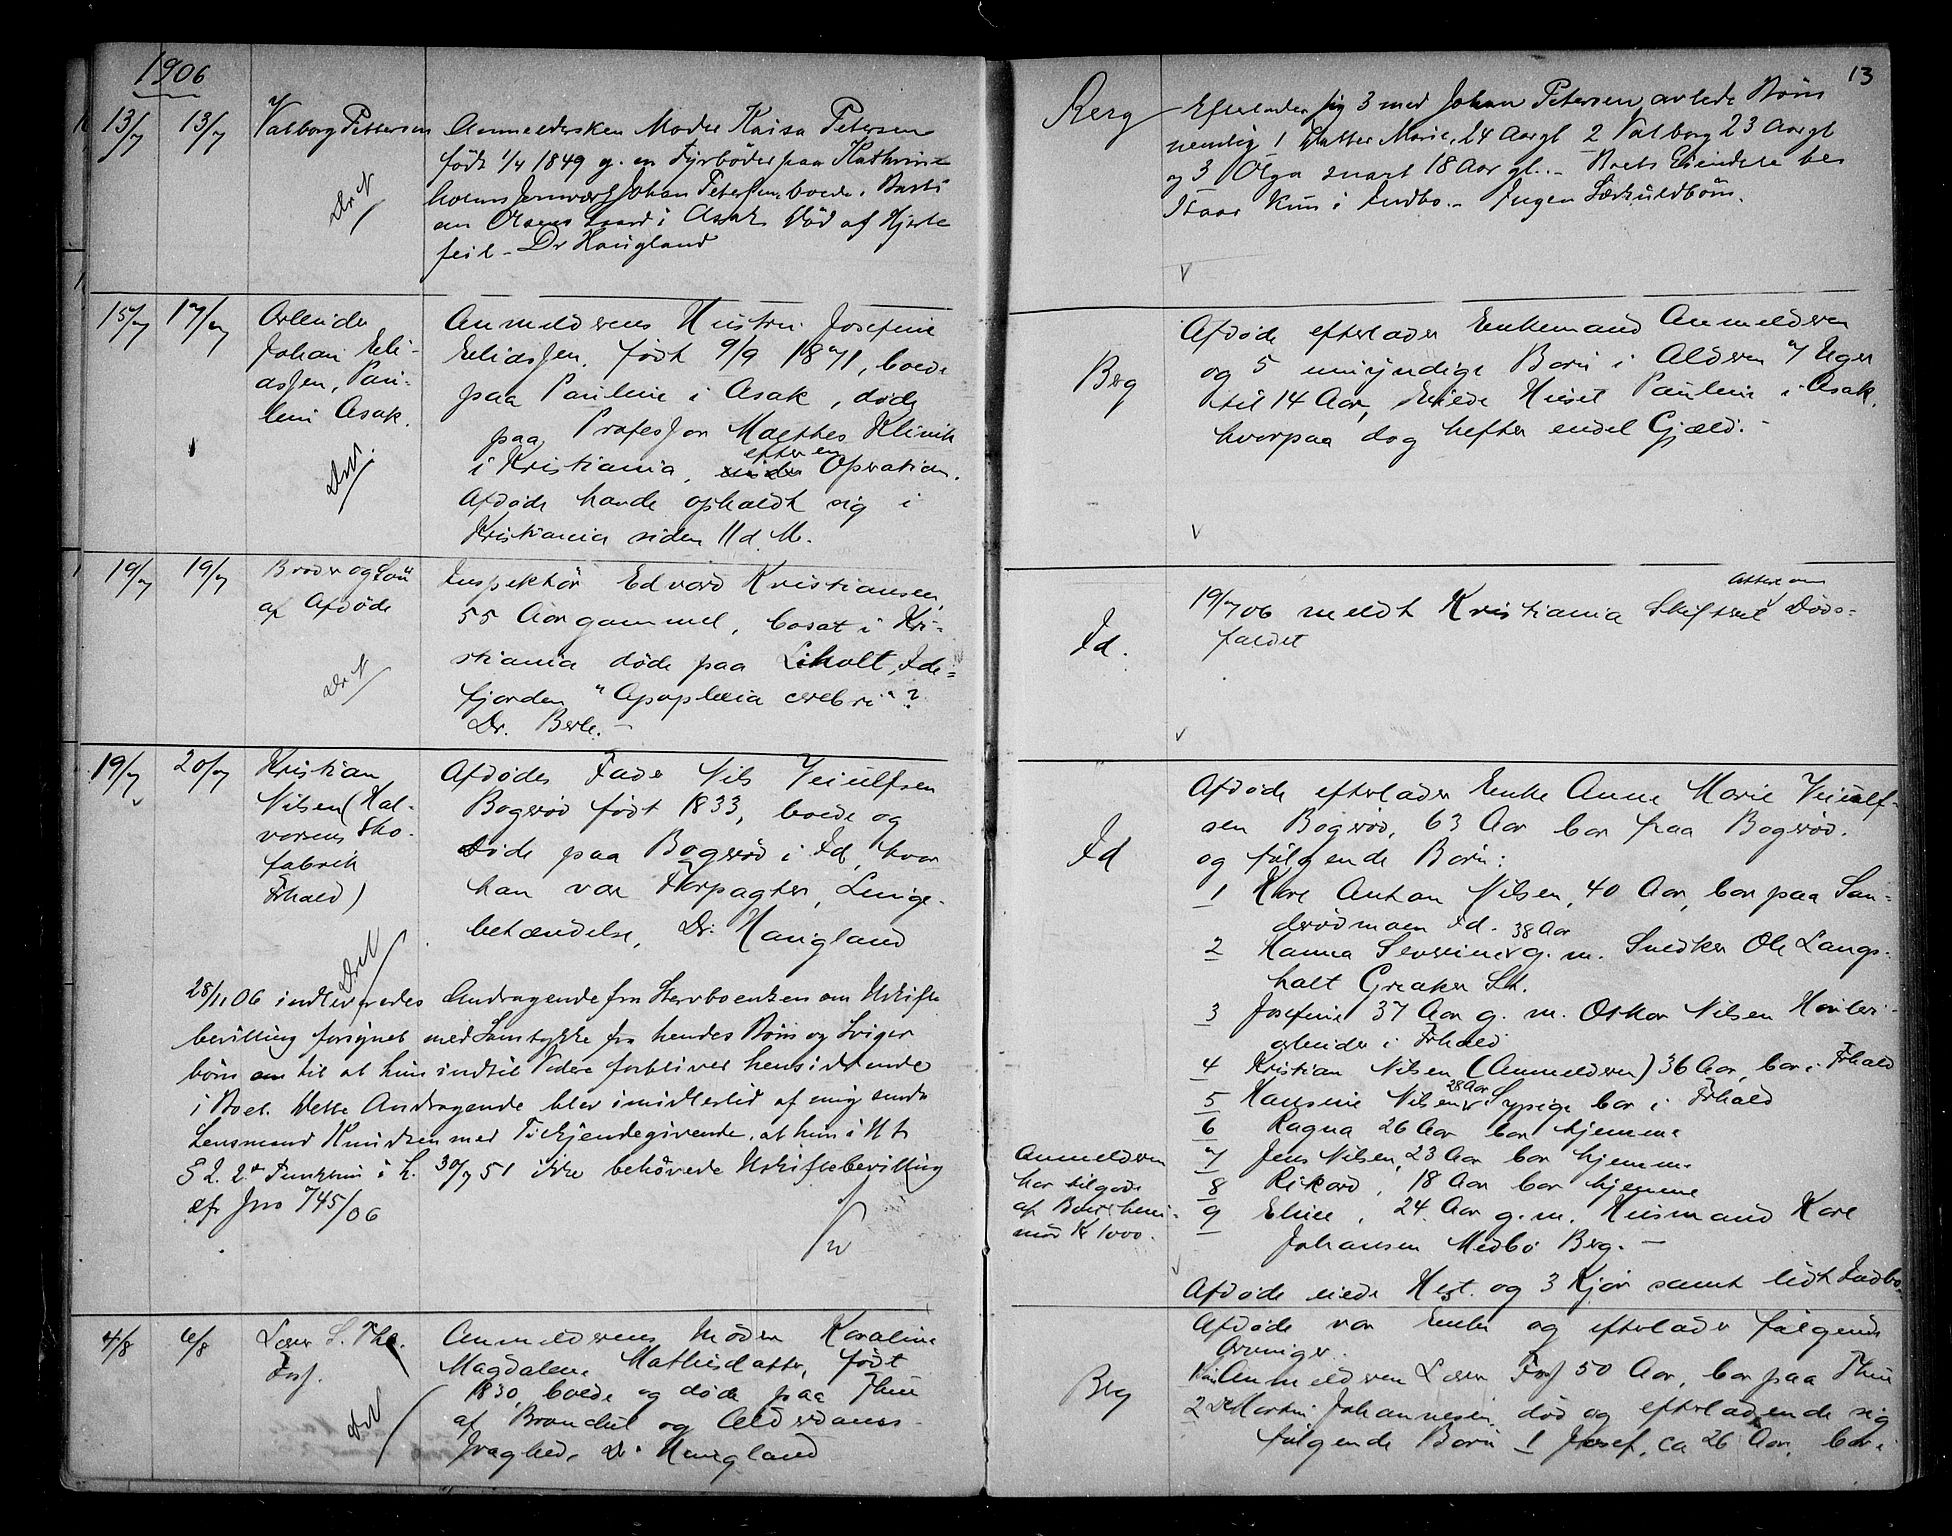 1906
13/7 13/7 Valborg Pettersen
Dr N
Anmeldersken Moder Kaisa Petersen
født 1/4 1849 g. m. Fyrbøder paa Kathrine
holms Jernværk Johan Petersen boede i
an Olsens Gaard i Asak. Død af Hjerte
feil - Dr Haugland
15/7 17/7 Arbeider
Johan Eli-
assen, Pau-
lini Asak.
Anmelderens Hustru Josefine
Eliassen, født 9/9 1871, boede
paa Pauline i Asak, døde
paa Professor Malthes Klinik
i Kristiania, efter en Operation.
Afdøde havde opholdt sig i
Kristiania siden 11 d. M.
19/7 19/7 Broder og Søn
af Afdøde
Dr N
Inspektør Edvard Kristiansen,
55 Aar gammel, bosat i Kri-
stiania døde paa Liholt, Ide-
fjorden "Apoplexia cerebri"?
Dr. Berle. -
19/7 20/7 Kristian
Nilsen (Hal-
vorsens Sko-
fabrik
Frhald)
Afdødes Fader Nils Veiulfsen
Bogerød født 1833, boede og
døde paa Bogerød i Id, hvor
han var Forpagter, Lunge-
betændelse, Dr. Haugland
28/11 06 indleveredes Andragende fra Stervboenken om Uskifte
bevilling forsynet med Samtykke fra hendes Børn og Sviger
børn om til at hun indtil Videre forbliver hensiddende
i Boet. Dette Andragende blev imidlertid af mig sendt
Lensmand Knudsen med Tilkjendegivende, at hun i Hht
§ 2. 2det Punktum i L. 30/7 51 ikke behøvede Uskiftebevilling
cfr Jno 745/06
4/8 6/8 Lærer L. Tho.
Foss.
Anmelderens Moder Karoline
Magdalene Mathisdatter, født
1830, boede og døde paa Thue
af Brandsel og Alderdoms-
svaghed. Dr Haugland
13
Berg
Efterlader sig 3 med Johan Petersen avlede Børn
nemlig 1 Datter Marie, 24 Aar gl 2 Valborg 23 Aar gl
og 3 Olga snart 18 Aar gl. - Boets Eiendele be
staar kun i Indbo. - Ingen Særkuldbørn.
Berg
Afdøde efterlader Enkemand Anmelderen
og 5 umyndige Børn i Alderen 7 Uger
til 14 Aar, Eiede Huset Pauline i Asak,
hvorpaa dog hefter endel Gjæld. -
Id.
19/7 06 meldt Kristiania Skifteret Attest om Døds-
faldet
Id
Afdøde efterlader Enke Anne Marie Veiulf-
sen Bogerød, 63 Aar bor paa Bogerød.
og følgende Børn:
1 Karl Anton Nilsen, 40 Aar, bor paa San-
derødmoen Id.
2 Hanna Severine 38 Aar g. m. Snedker Ole Langs-
holt Greaker St.
3 Josefine 37 Aar g. m. Oskar Nilsen Havle
arbeider i Frhald
4 Kristian Nilsen (Anmelderen) 36 Aar, bor i Frhald
5 Hansine Nilsen 28 Aar Sypige bor i Frhald
6 Ragna 26 Aar bor hjemme
7 Jens Nilsen, 23 Aar bor hjemme
8 Rikard, 18 Aar bor hjemme
9 Elise, 24 Aar g. m. Husmand Karl
Johansen Medbø Berg. -
Anmelderen
har tilgode
af Boet
mod Kr 1000.
Afdøde eiede Hest og 3 Kjør samt lidt Indbo.
Berg
Afdøde var Enke og efterlader følgende
Arvinger.
1 Anmelderen Lærer Foss 50 Aar, bor paa Thue
2 Martin Johannesen, død og efterladende sig
følgende Børn 1 Josef, ca 26 Aar, bor i